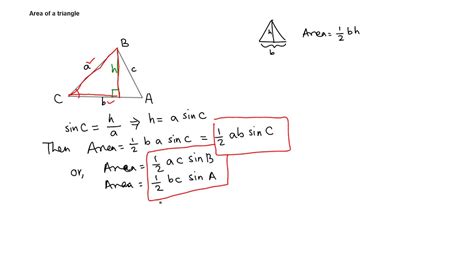 Area of a triangle
h
b
Area = 1/2 bh
B
a
h
c
C
b
A
sin C = h/a ⇒ h = a sin C
Then Area = 1/2 b a sin C = 1/2 ab sin C
or, Area = 1/2 ac sin B
Area = 1/2 bc sin A